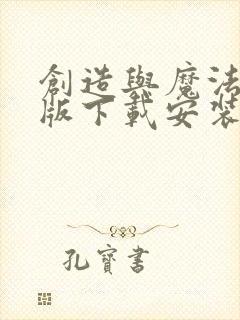 創造與魔法
版下載安裝
孔寶書